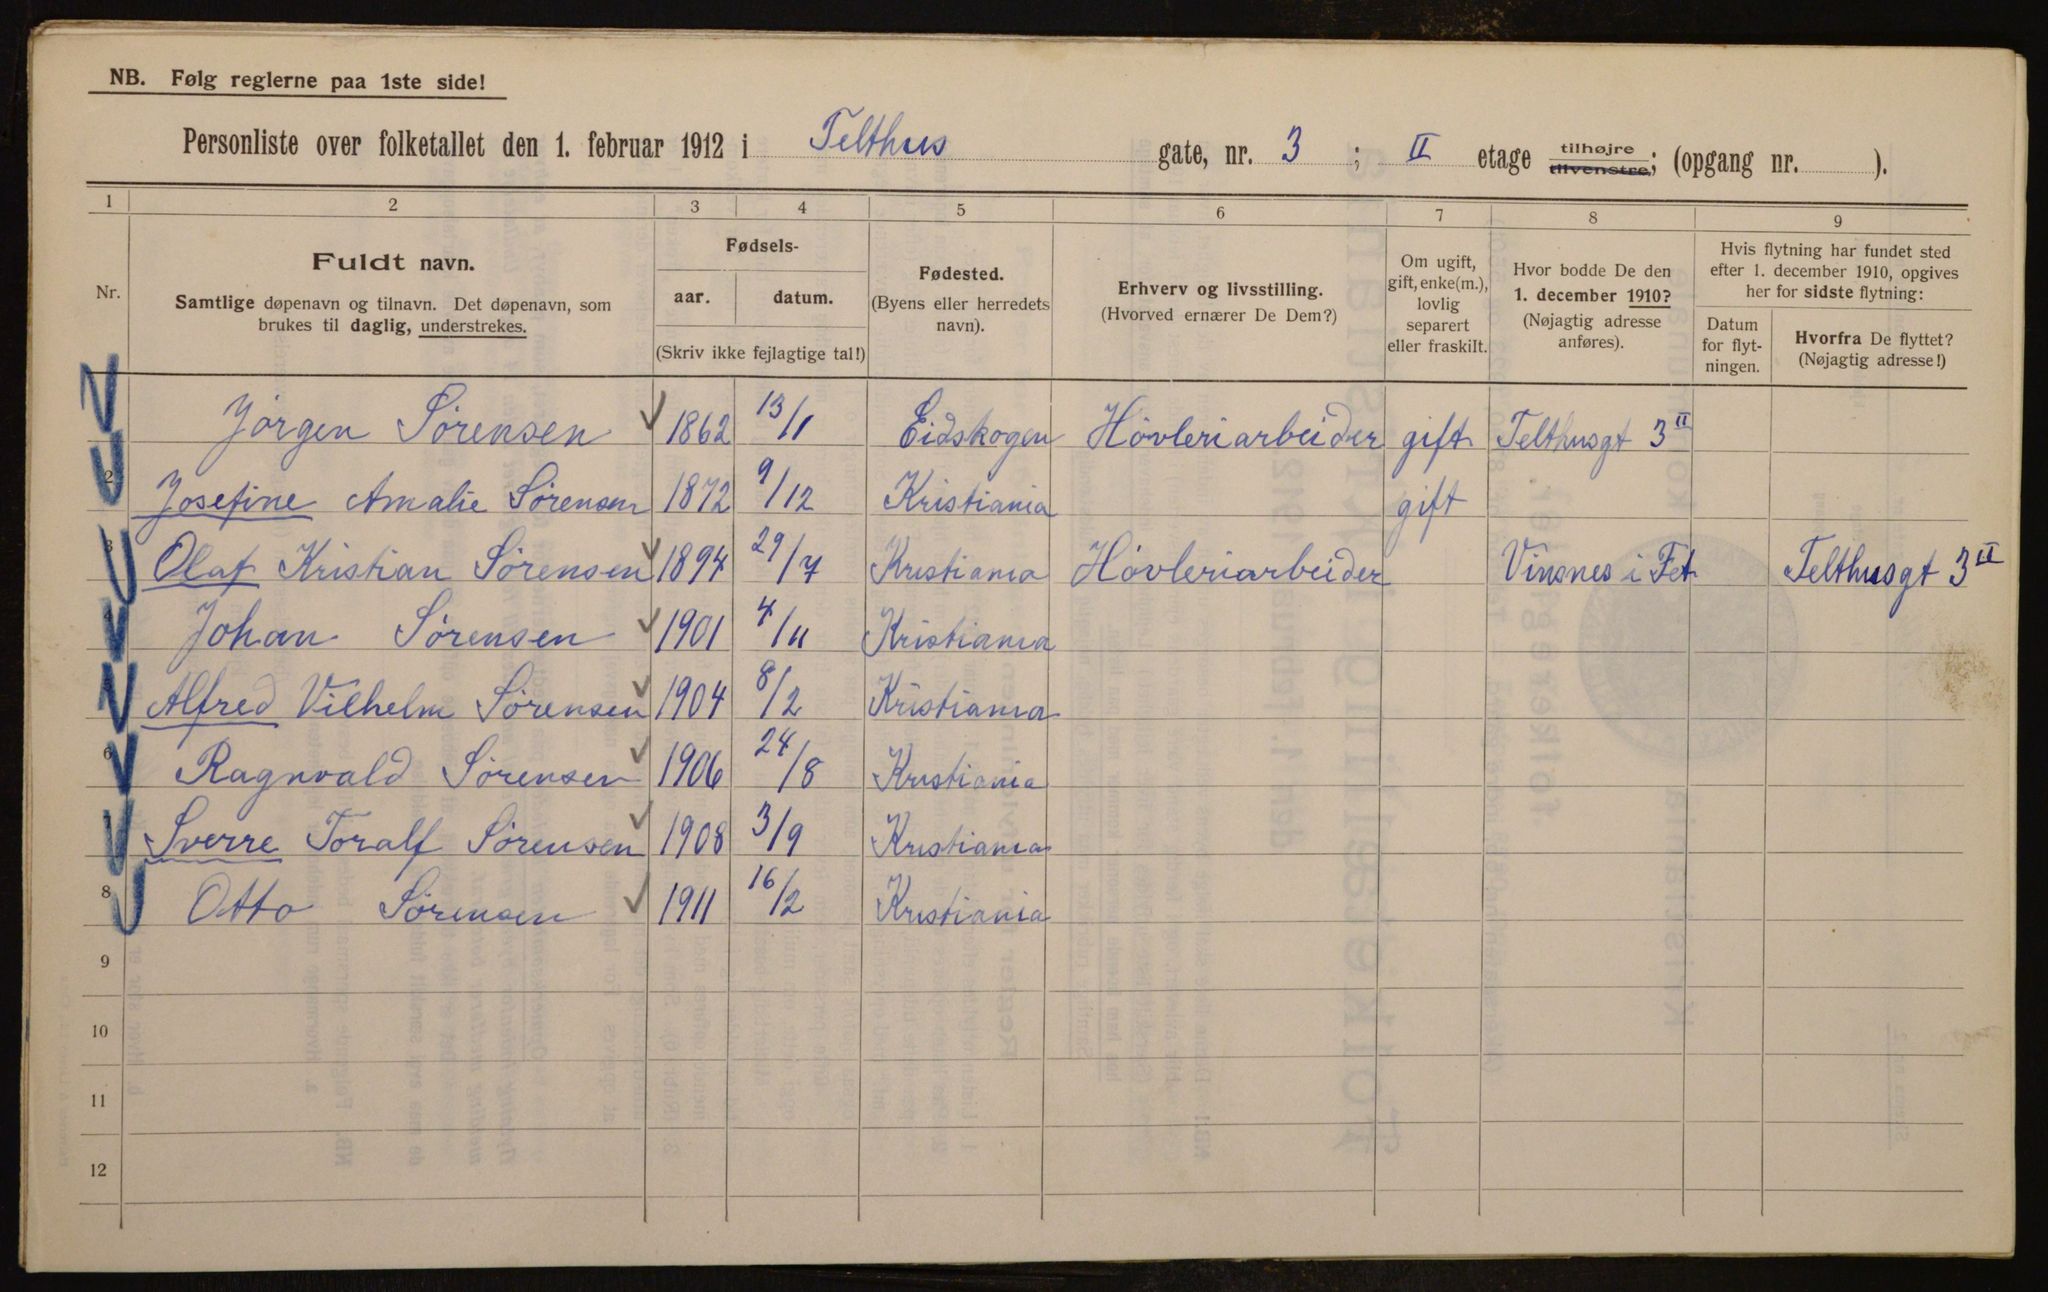 NB. Følg reglerne paa 1ste side!
Personliste over folketallet den 1. februar 1912 i Telthus gate, nr. 3 ; II etage tilhøjre tilvenstre; (opgang nr. ).
1 2 3 4 5 6 7 8 9
Nr.
Fuldt navn.
Samtlige døpenavn og tilnavn. Det døpenavn, som
brukes til daglig, understrekes.
Fødsels-
aar. datum.
(Skriv ikke fejlagtige tal!)
Fødested.
(Byens eller herredets
navn).
Erhverv og livsstilling.
(Hvorved ernærer De Dem?)
Om ugift,
gift, enke(m.),
lovlig
separert
eller fraskilt.
Hvor bodde De den
1. december 1910?
(Nøjagtig adresse
anføres).
Hvis flytning har fundet sted
efter 1. december 1910, opgives
her for sidste flytning:
Datum
for flyt-
ningen.
Hvorfra De flyttet?
(Nøjagtig adresse!)
Jörgen Sørensen 1862 13/1 Eidskogen Høvleriarbeider gift Telthusgt 3 II
2 Josefine Amalie Sørensen 1872 9/12 Kristiania gift
3 Olaf Kristian Sørensen 1894 29/7 Kristiania Høvleriarbeider Vinsnes i Fet Telthusgt 3 II
4 Johan Sørensen 1901 4/11 Kristiania
5 Alfred Vilhelm Sørensen 1904 8/2 Kristiania
6 Ragnvald Sørensen 1906 24/8 Kristiania
7 Sverre Toralf Sørensen 1908 3/9 Kristiania
8 Otto Sørensen 1911 16/2 Kristiania
9
10
11
12